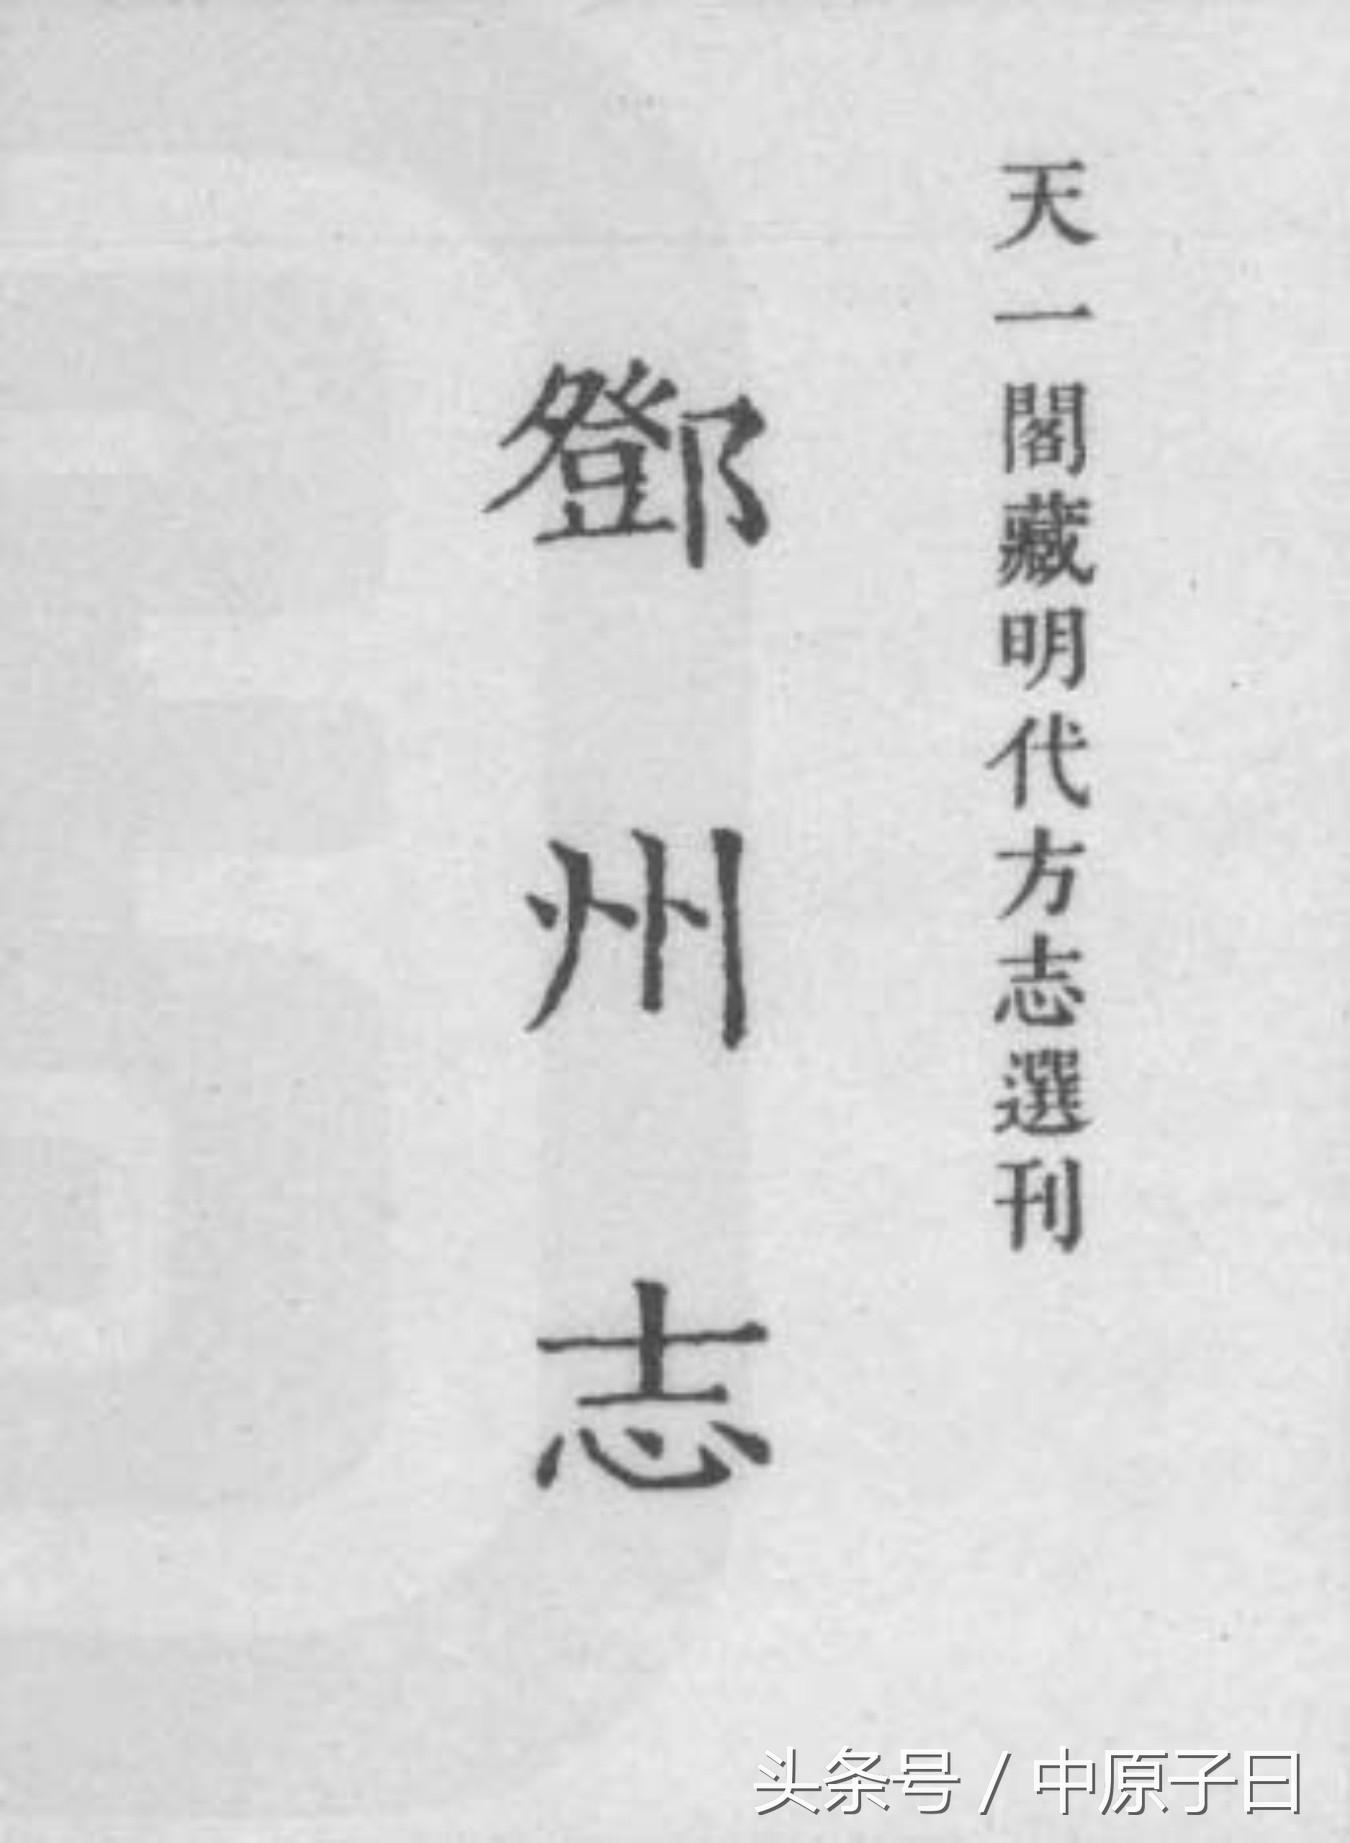 天一閣藏明代方志選刊
鄧州志
头条号 / 中原子曰